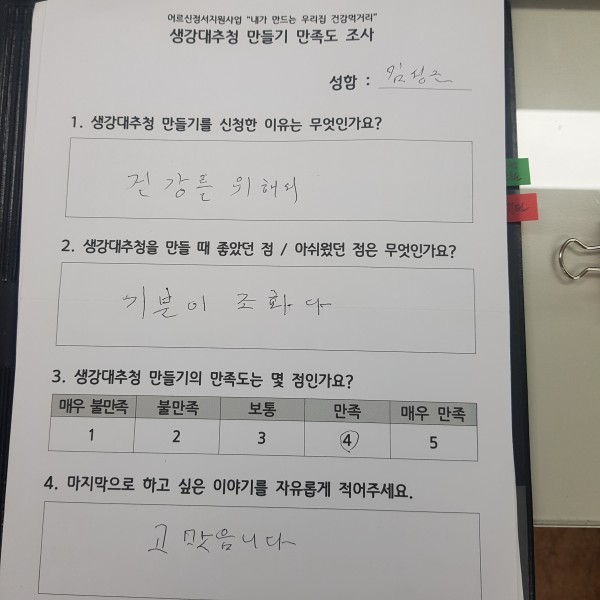 어르신정서지원사업 "내가 만드는 우리집 건강먹거리"
생강대추청 만들기 만족도 조사
성함 : 임성근
1. 생강대추청 만들기를 신청한 이유는 무엇인가요?
건강를 위해서
2. 생강대추청을 만들 때 좋았던 점 / 아쉬웠던 점은 무엇인가요?
기분이 조화다
3. 생강대추청 만들기의 만족도는 몇 점인가요?
매우 불만족 불만족 보통 만족 매우 만족
1 2 3 4 5
4. 마지막으로 하고 싶은 이야기를 자유롭게 적어주세요.
고맛음니다